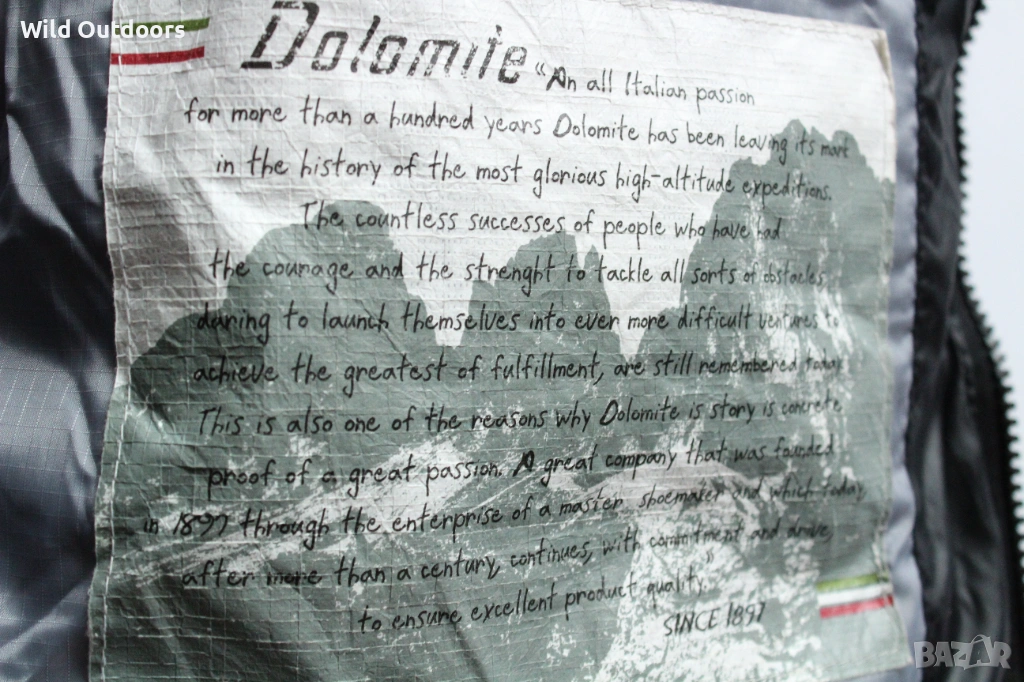 Wild Outdoors
Dolomite "An all Italian passion
for more than a hundred years Dolomite has been leaving its mark
in the history of the most glorious high-altitude expeditions.
The countless successes of people who have had
the courage and the strenght to tackle all sorts of obstacles,
daring to launch themselves into ever more difficult ventures to
achieve the greatest of fulfillment, are still remembered today.
This is also one of the reasons why Dolomite is story is concrete
proof of a great passion. A great company that was founded
in 1897 through the enterprise of a master shoemaker and which today,
after more than a century, continues, with commitment and drive,
to ensure excellent product quality."
SINCE 1897
BAZAR